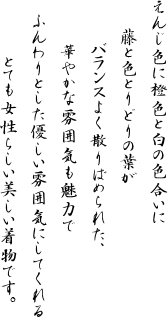 えんじ色に橙色と白の色合いに
藤と色とりどりの葉が
バランスよく散りばめられた、
華やかな雰囲気も魅力で
ふんわりとした優しい雰囲気にしてくれる
とても女性らしい美しい着物です。